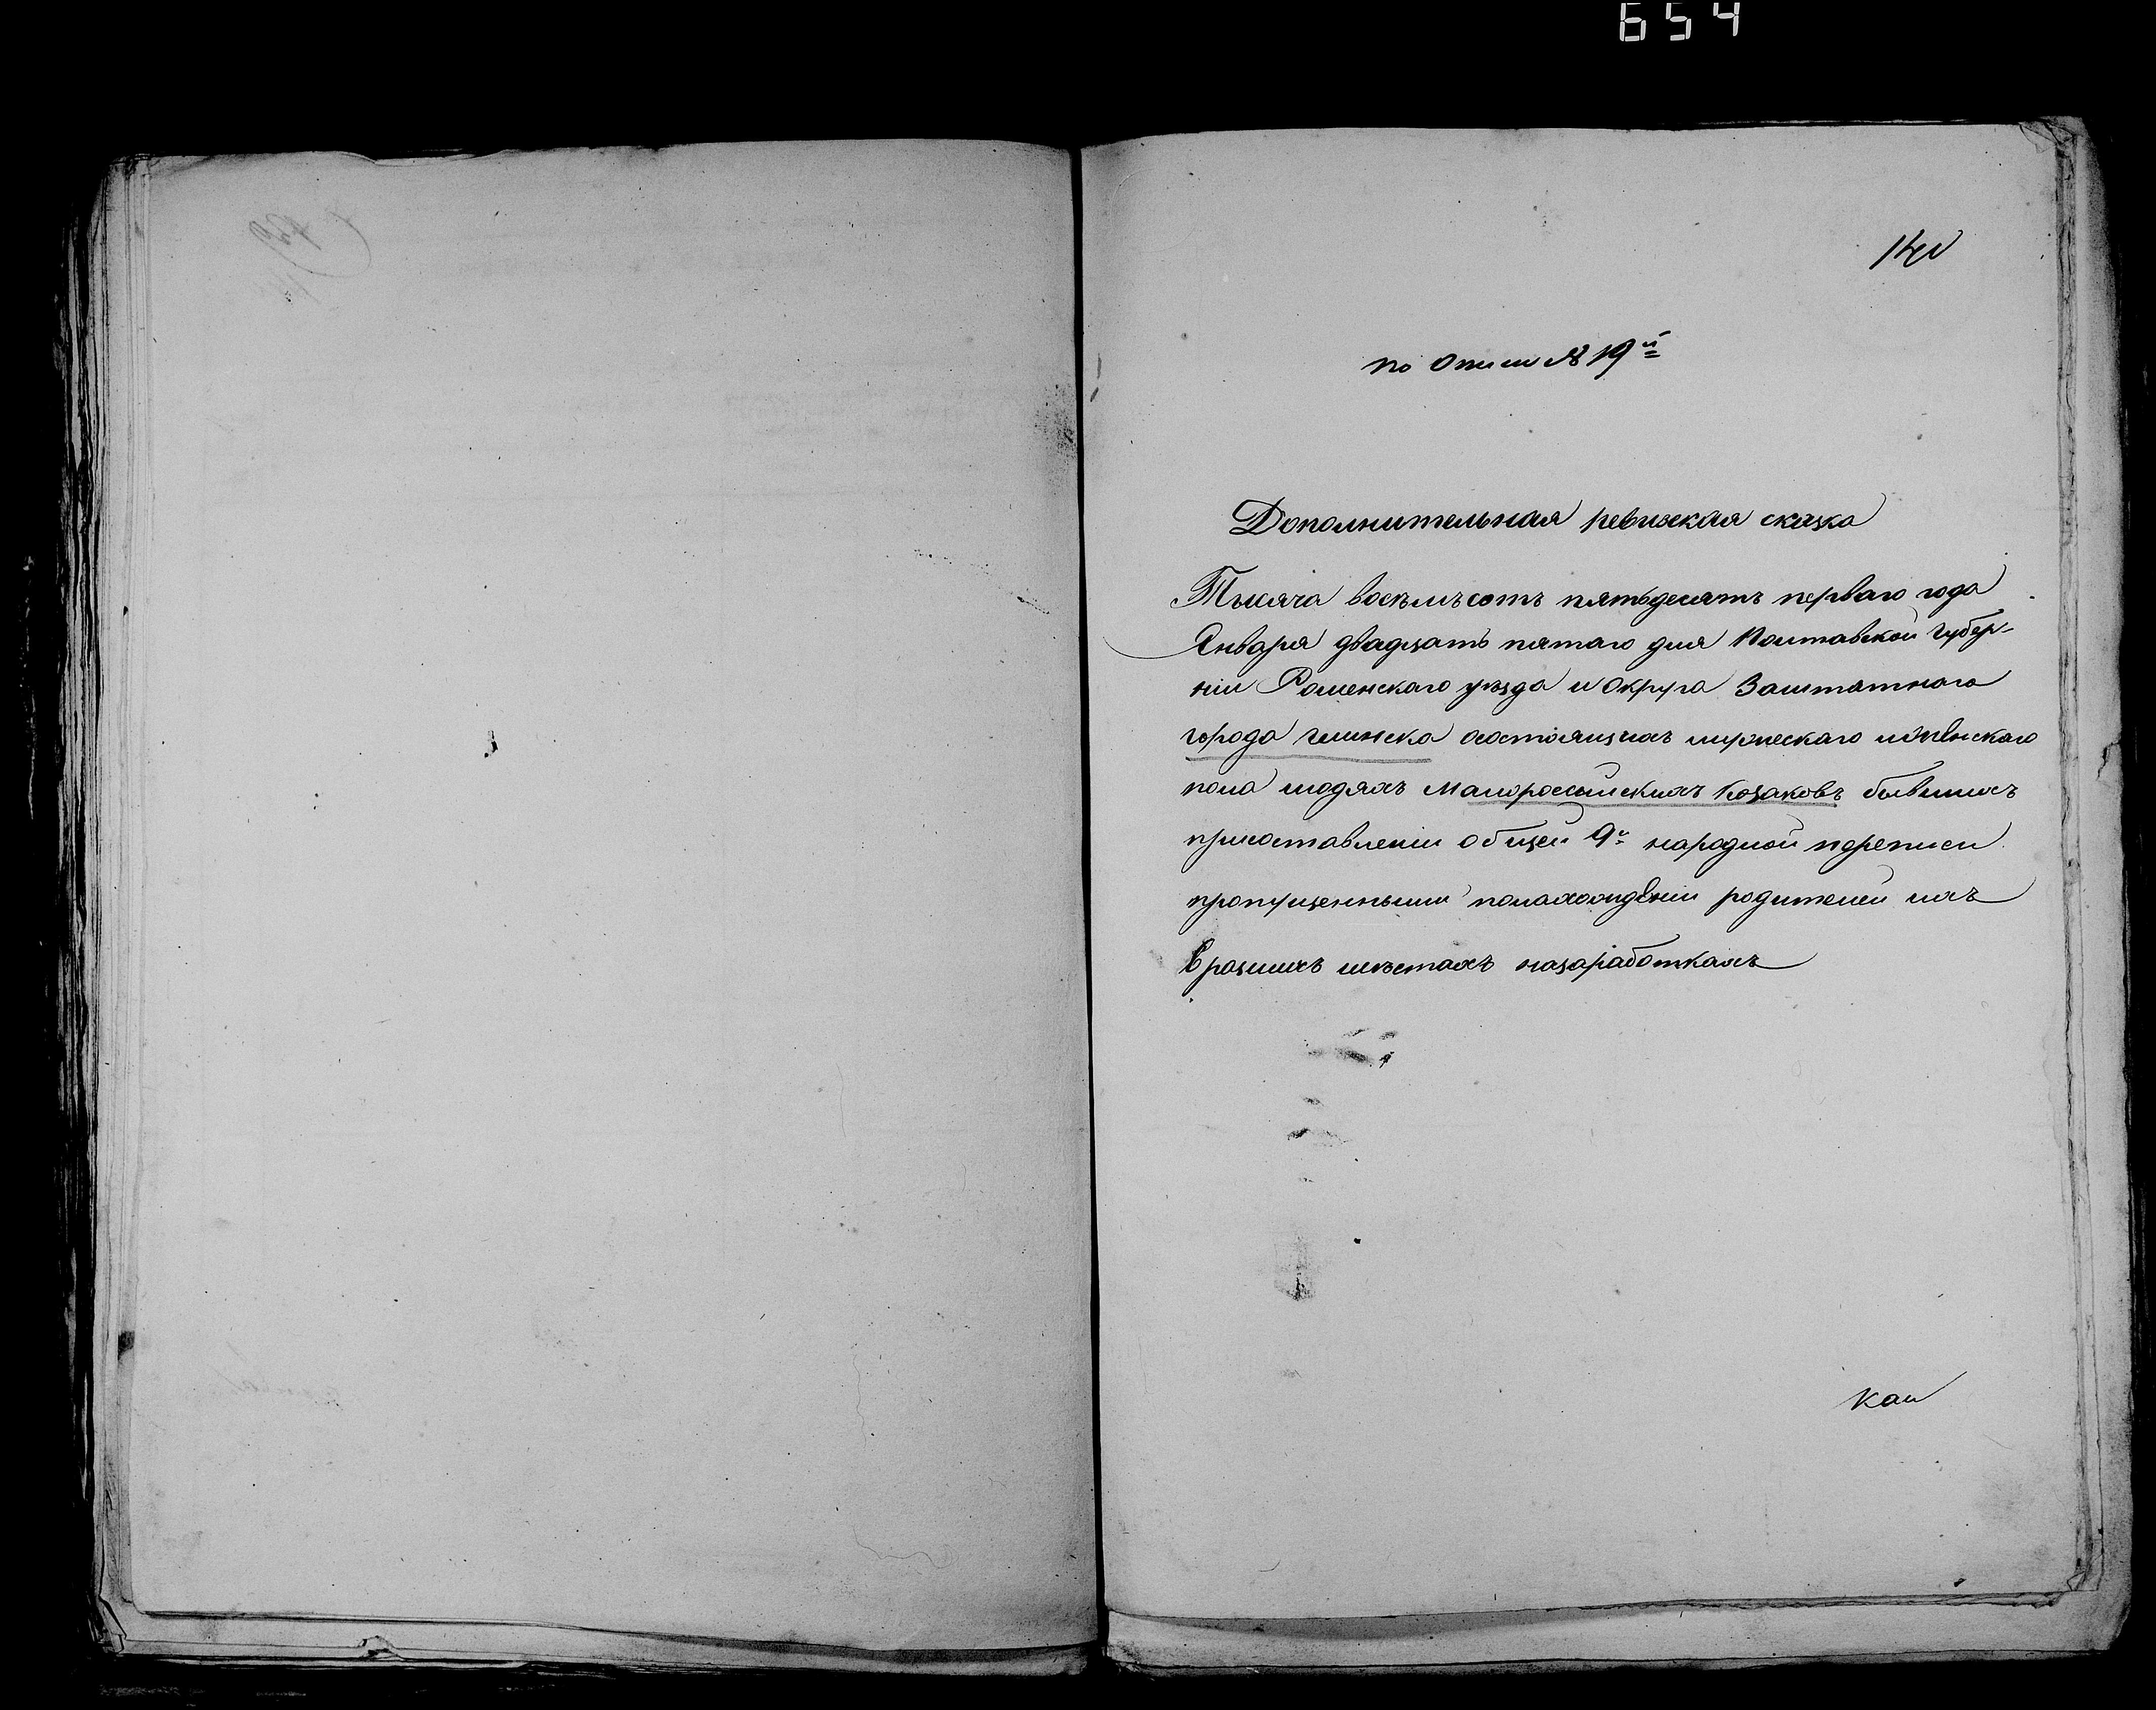 654
по Описи № 19й
Дополнительная ревизская сказка
Тысяча восемъсотъ пятьдесятъ перваго года
Января двадцать пятаго дня Полтавской Губер-
ніи Роменскаго уѣзда и Округа Заштатнаго
города Глинска состоящихъ мужескаго иженскаго
пола людяхъ Малороссійскихъ Козаковъ бывшихъ
присоставленіи общей 9й народной переписи
пропущенными понахожденіи родителей ихъ
вразныхъ мѣстахъ назаработкахъ